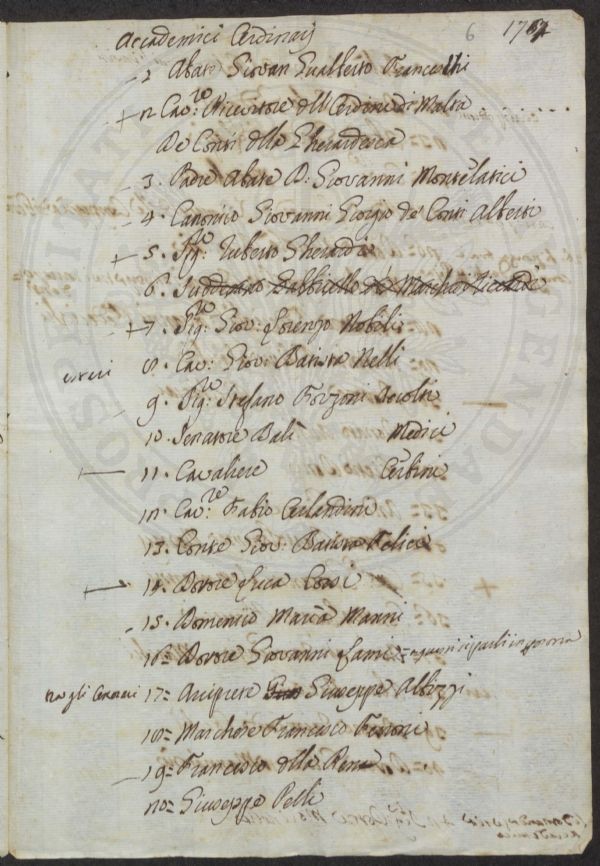 Accademici Ordinarj 6 1762
1 Abate Giovan Gualberto Franceschi
2 Cav:re Ricevitore dell'Ordine di Malta
De Conti della Gherardesca
3. Padre Abate D: Giovanni Montelatici
4. Canonico Giovanni Giorgio de' Conti Alberti
5. Sig:re Uberto Gherardi
6. Suddecano Gabbriello de' Marchesi Riccardi
7. Sig:re Giov: Lorenzo Nobili
8. Cav: Giov: Batista Nelli
9. Sig:re Stefano Forzoni Accolti
10. Senatore Balì Medici
11. Cavaliere Cerbini
12. Cav:re Fabio Orlandini
13. Conte Giov: Batista Felici
14. Dottore Luca Corsi
15. Domenico Maria Manni
16= Dottore Giovanni Lami =
tra gli Onorari 17= Giuseppe Albizzi
18= Marchese Francesco Feroni
19= Francesco della Rena
20= Giuseppe Pelli